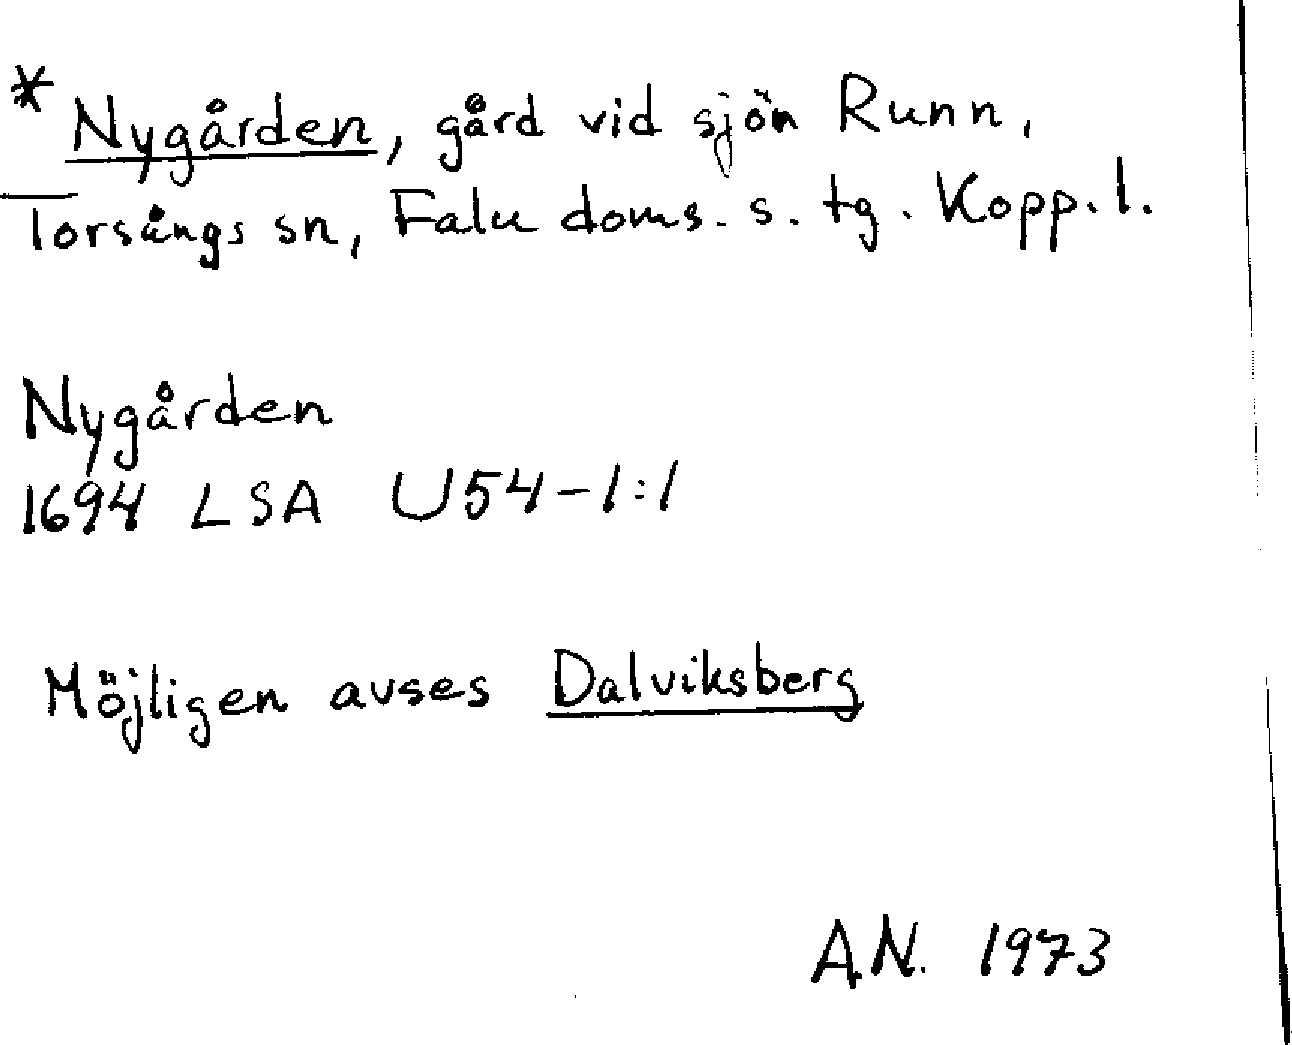 * Nygården, gård vid sjön Runn,
Torsångs sn, Falu doms. s. tg. Kopp. l.
Nygården
1694 LSA U54-1:1
Möjligen avses Dalviksberg
A.N. 1973